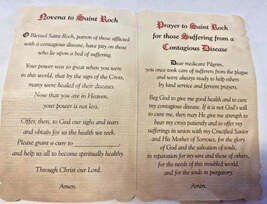 Novena to Saint Rock
O Blessed Saint Rock, patron of those afflicted
with a contagious disease, have pity on those
who lie upon a bed of suffering.
Your power was so great when you were
in this world, that by the sign of the Cross,
many were healed of their diseases.
Now that you are in Heaven,
your power is not less.
Offer, then, to God our sighs and tears
and obtain for us the health we seek.
Please grant a cure to
and help us all to become spiritually healthy.
Through Christ our Lord.
Amen.
Prayer to Saint Rock
for those Suffering from a
Contagious Disease
Dear mendicant Pilgrim,
you once took care of sufferers from the plague
and were always ready to help others
by kind service and fervent prayers.
Beg God to give me good health and to cure
my contagious disease. If it is not God's will
to cure me, then may He give me strength to
bear my cross patiently and to offer my
sufferings in union with my Crucified Savior
and His Mother of Sorrows, for the glory
of God and the salvation of souls,
in reparation for my sins and those of others,
for the needs of this troubled world,
and for the souls in purgatory.
Amen.